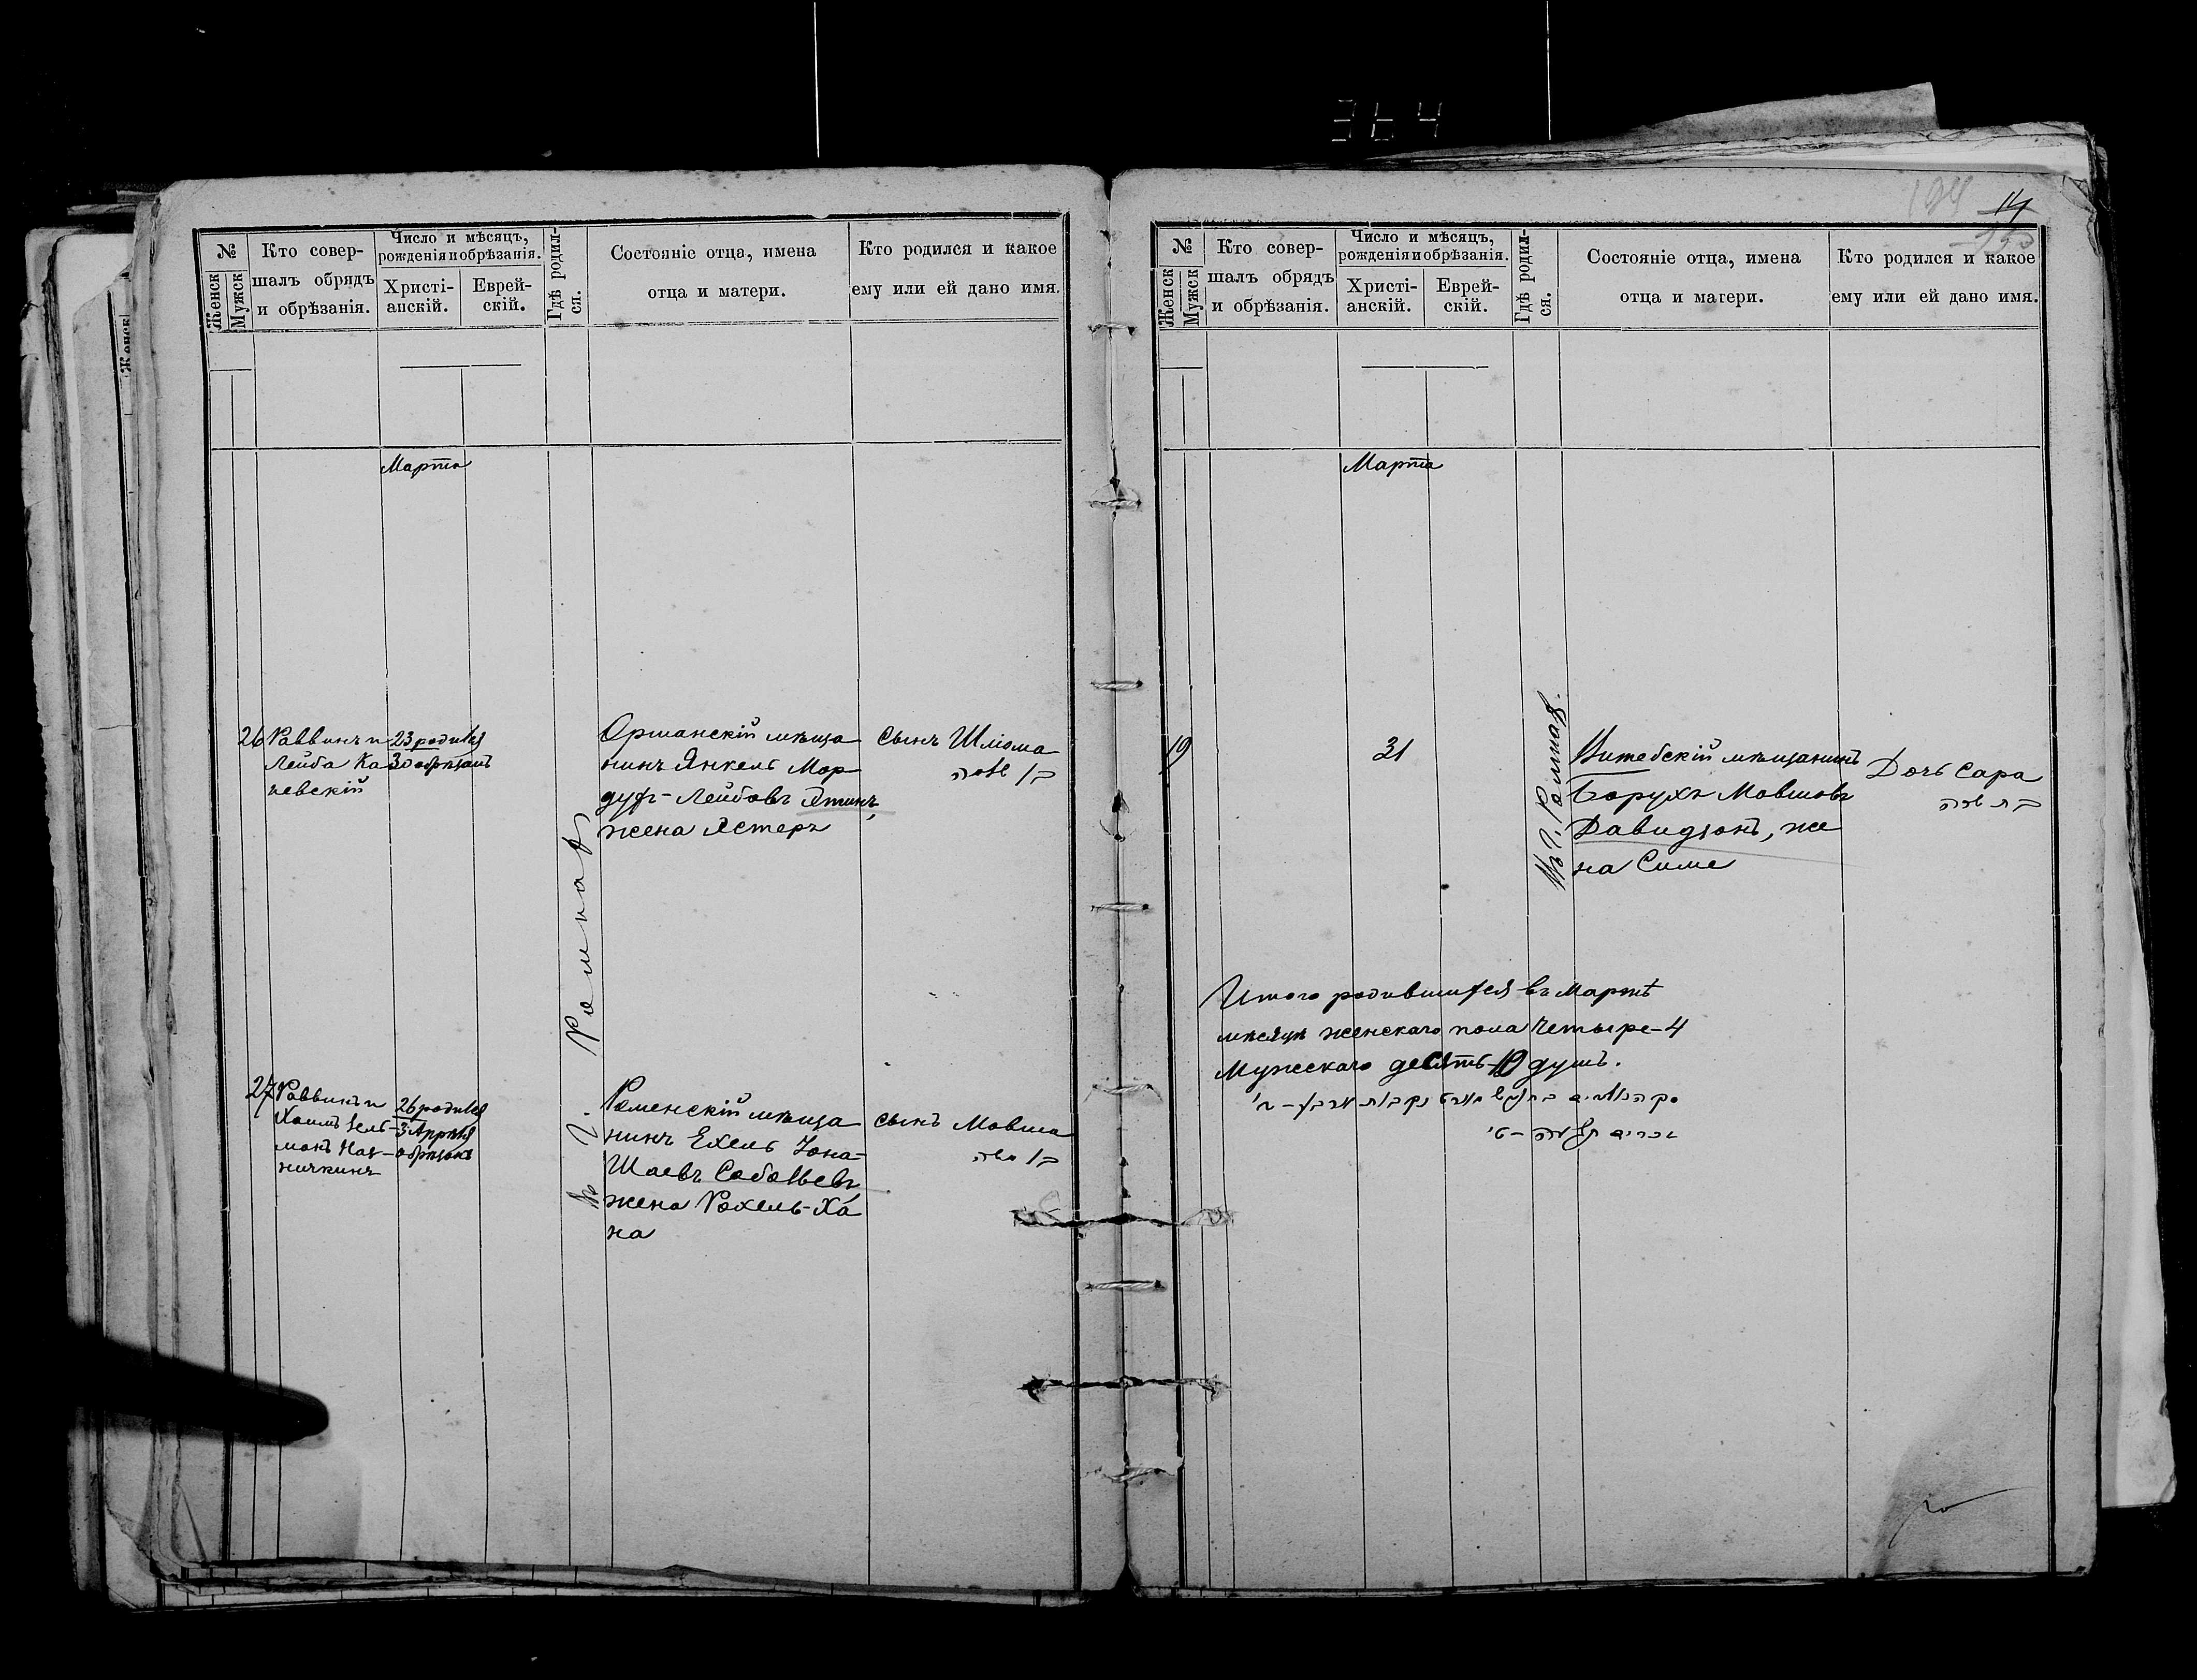 364
14
№
Женск
Мужск
Кто совер-
шалъ обрядъ
и обрѣзанія.
Число и мѣсяцъ,
рожденія и обрѣзанія.
Христі-
анскій.
Еврей-
скій.
Гдѣ родил-
ся.
Состояніе отца, имена
отца и матери.
Кто родился и какое
ему или ей дано имя.
Марта
26
Раввинъ и
Лейба Ка
невскій
23 родился
30 обрѣзанъ
Оршанскій мѣща
нинъ Янкель Мор
дух-Лейбовъ
жена Эстеръ
сынъ Шліома
בן שלמה
Въ Г. Ромнахъ
27
Раввинъ и
Хаимъ Зель-
манъ
26 родился
3 Апрѣля
обрѣзанъ
Роменскій мѣща
нинъ Ехель Іона-
Шаевъ Соболевъ
жена Рохель-Ха
на
сынъ Мовша
בן משה
№
Женск
Мужск
Кто совер-
шалъ обрядъ
и обрѣзанія.
Число и мѣсяцъ,
рожденія и обрѣзанія.
Христі-
анскій.
Еврей-
скій.
Гдѣ родил-
ся.
Состояніе отца, имена
отца и матери.
Кто родился и какое
ему или ей дано имя.
Марта
19
31
Въ Г. Ромнах.
Витебскій мѣщанинъ
Борухъ Мовшовъ
Давидзонъ, же
на Симе
Дочь Сара
בת שרה
Итого родившихся въ Мартѣ
мѣсяцѣ женскаго пола четыре-4
Мужскаго десять-10 душъ.